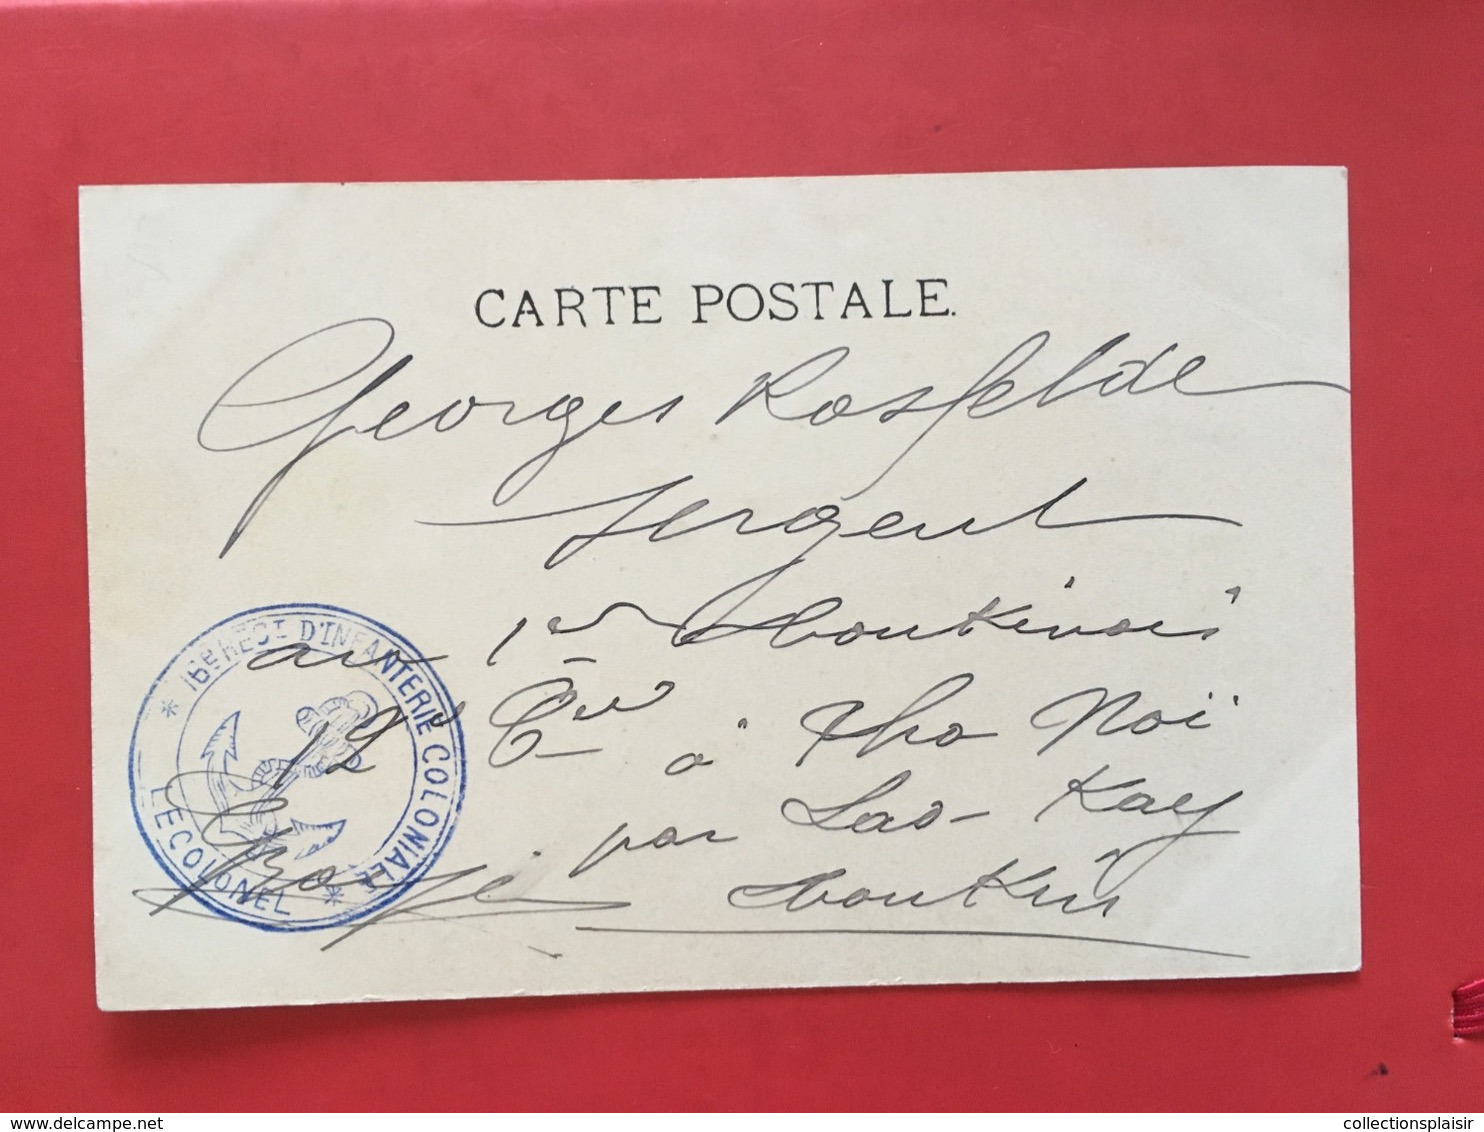 CARTE POSTALE.
Georges Rosfelde
Sergent
au 1er Tonkinois
12e Cie à Pho Moi
par Lao-Kay
Tonkin
* 16e REGT D'INFANTERIE COLONIALE *
LE COLONEL
delcampe.net
collectionsplaisir